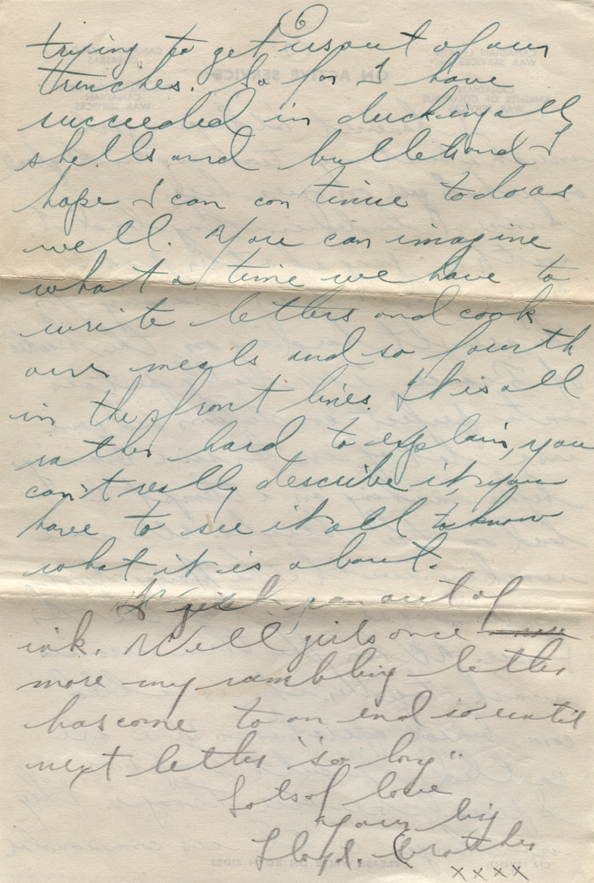 6
trying to get us out of our
trenches. So far I have
succeeded in ducking all
shells and bullets and I
hope I can con tinue to do as
well. You can imagine
what a time we have to
write letters and cook
our meals and so fourth
in the front lines. It is all
rather hard to explain, you
can't really describe it, you
have to see it all to know
what it is about.
I just ran out of
ink. Well girls once
more my rambling letter
has come to an end so until
next letter "so long"
Lots of love
Your big
Lloyd. Brother
xxxx